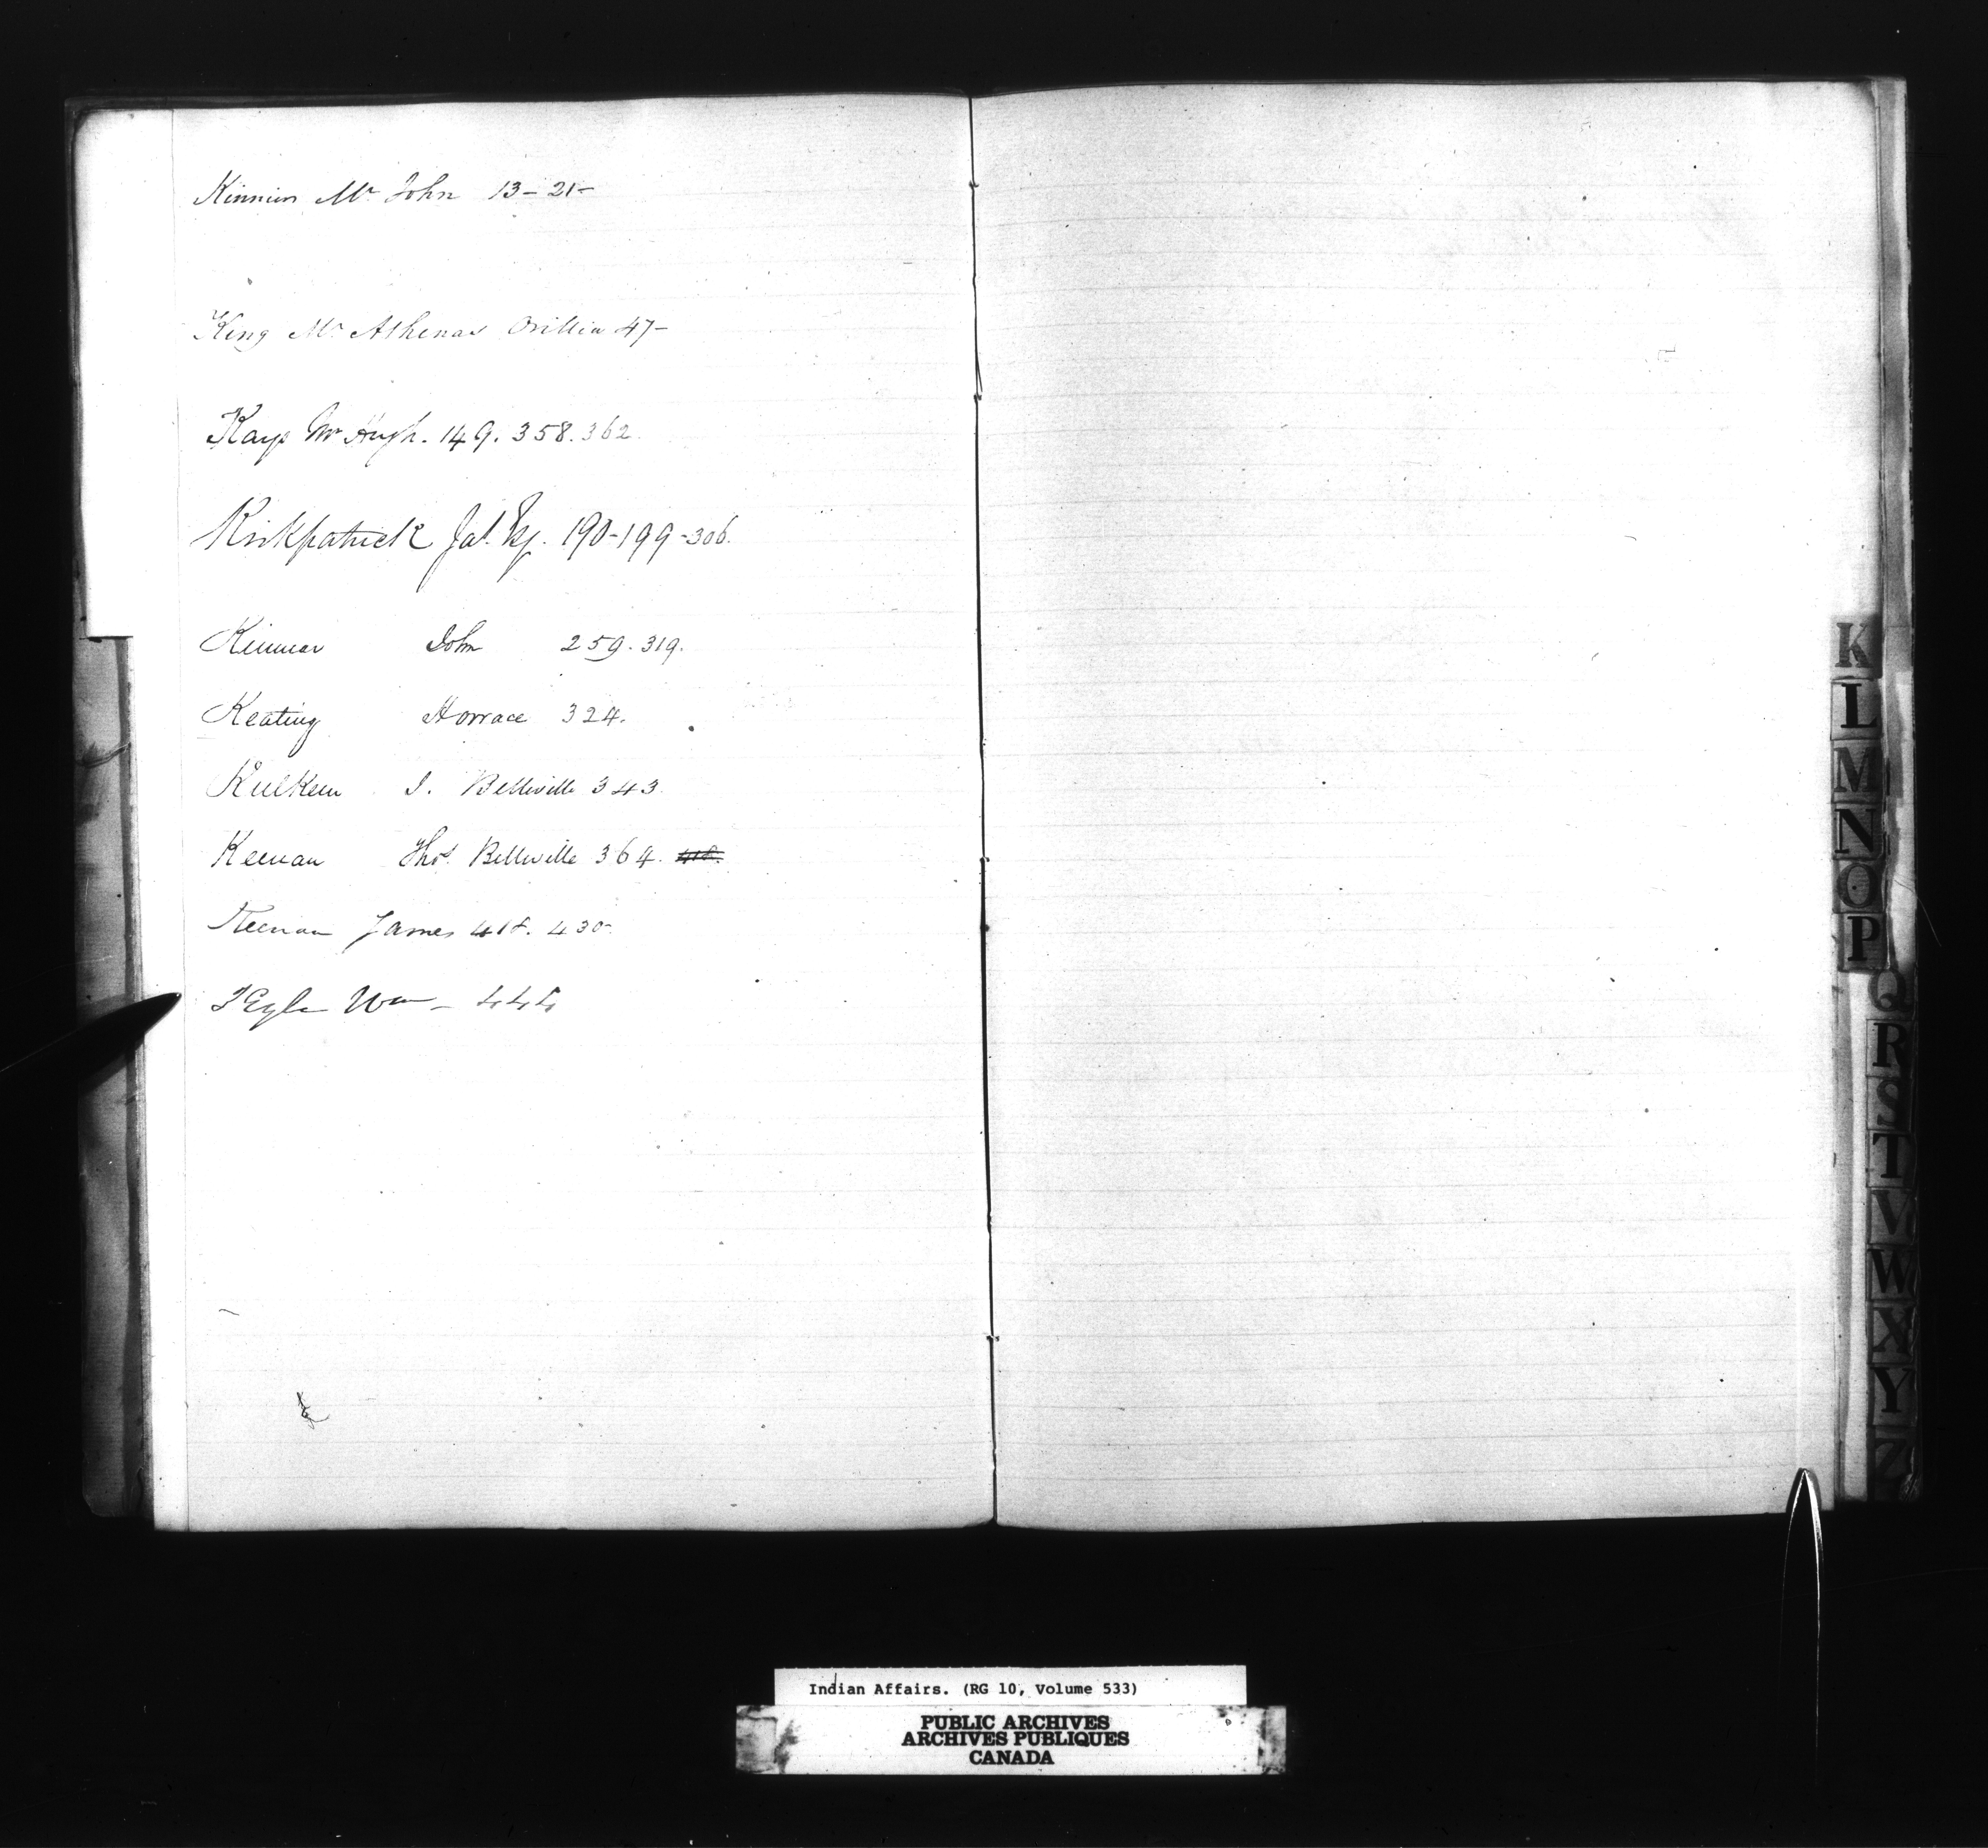 Kinnier Mr John 13-21-
King Mr Athenas Orillia 47-
Kays Mr Hugh. 149. 358. 362.
Kirkpatrick Jas. Esq. 190-199-306.
John 259. 319.
Keating Horrace 324.
J. Belleville 343.
Keenan Thos. Belleville 364. 418.
Keenan James 418. 430-
Wm - 444
K
L
M
N
O
P
Q
R
S
T
V
W
X
Y
Z
Indian Affairs. (RG 10, Volume 533)
PUBLIC ARCHIVES
ARCHIVES PUBLIQUES
CANADA